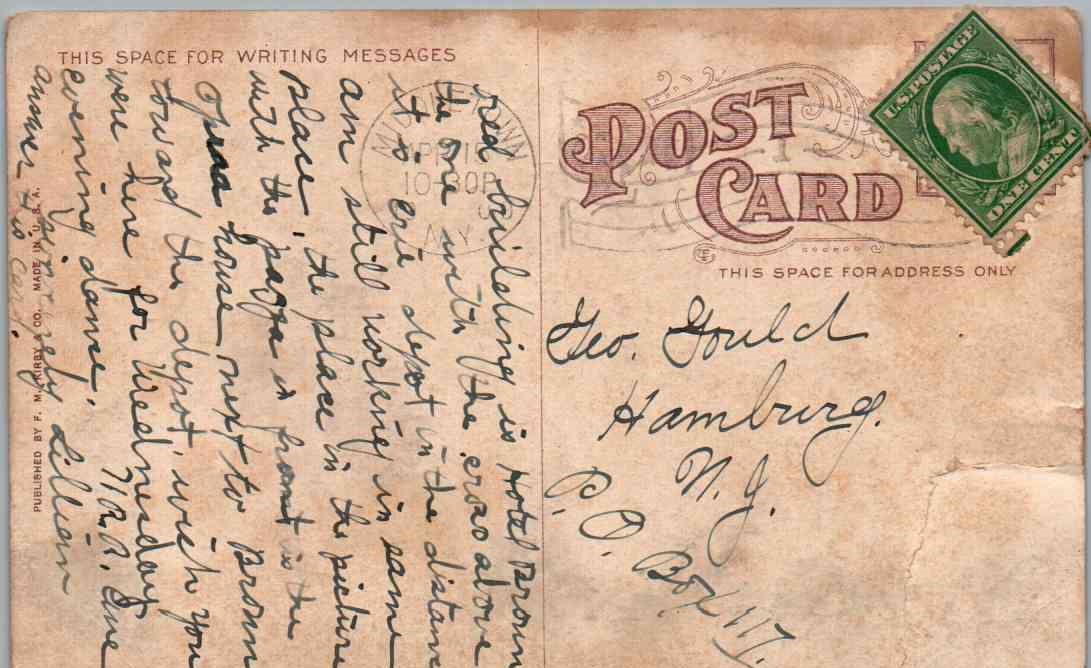 THIS SPACE FOR WRITING MESSAGES
red building is Hotel Brown
the one with the cross above
it is erie depot in the distance
am still working in same
place, the place in the picture
with the pages in front is the
Opraa house, next to Brown
toward the depot, wish you
were here for Wednesday
evening dance. 71 R.R. Ave
Lillian
answer this card.
PUBLISHED BY F. M. KIRBY & CO. MADE IN U. S. A.
APR 15
10-30P
N.Y.
POST
CARD
U.S. POSTAGE
ONE CENT
THIS SPACE FOR ADDRESS ONLY
Geo. Gould
Hamburg.
N. J.
P. O. Box 117.